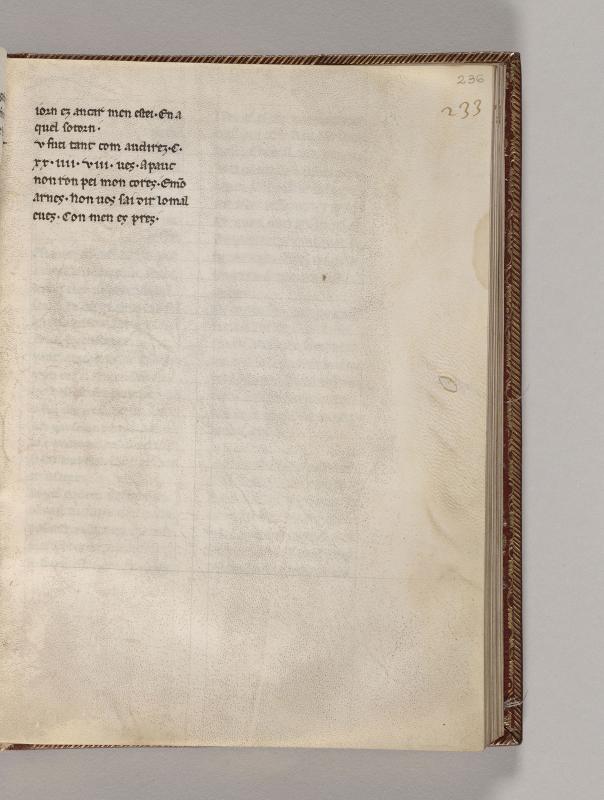 236
233
iorn ez ancar men estei · En a
quel soiorn ·
v fuci tant com audirez · C ·
xx · iiii · viii · ues · Apauc
non ron pei mon corez · Emō
arnez · Non uos sai dir lo mal
euez · Con men ez prez ·